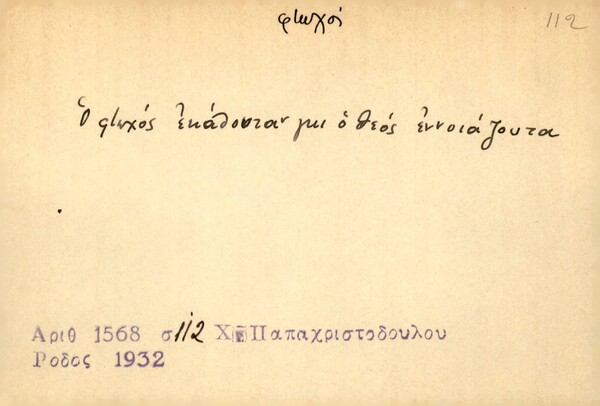 φτωχοί
112
Ὁ φτωχός ἐκάθουταν και ὁ θεός ἐννοιάζουτα
Αριθ 1568 σ 112 Χ Παπαχριστοδουλου
Ροδος 1932